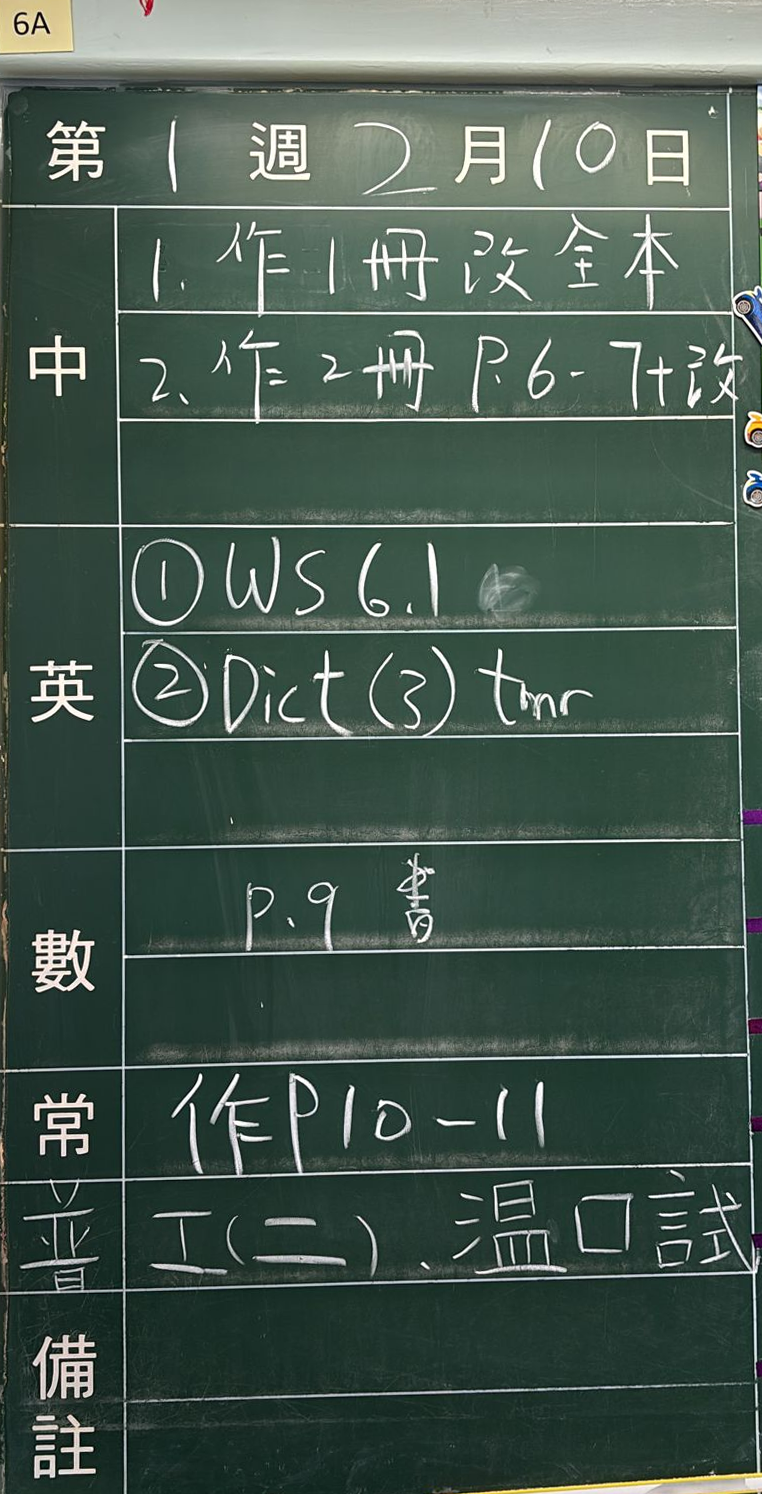 6A
第 1 週 2 月 10 日
中
1. 作 1 冊 改 全 本
2. 作 2 冊 P.6-7+改
英
① WS 6.1
② Dict (3) tmr
數
P.9 書
常
作P10-11
普
工(二)、温口試
備註